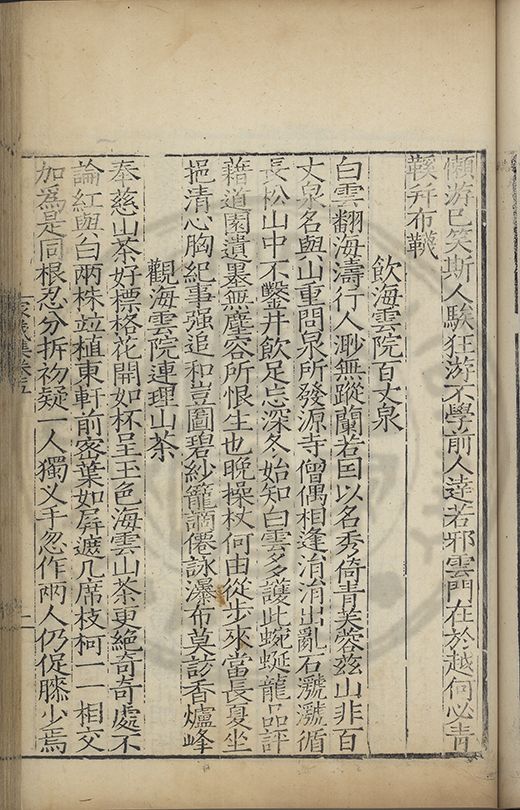 懶游已笑斯人騃狂游不學前人達若邪雲門在於越何必青
鞵并布韈
飲海雲院百丈泉
白雲翻海濤行人渺無蹤蘭若因以名秀倚青芙蓉茲山非百
丈泉名與山重問泉所發源寺僧偶相逢涓涓出亂石㶁㶁循
長松山中不鑿井飲足忘深冬始知白雲多護此蜿蜒龍品評
藉道園遺墨無塵容所恨生也晚操杖何由從步來當長夏坐
挹清心胸紀事强追和豈圖碧紗籠謫僊詠瀑布莫該香爐峰
觀海雲院連理山茶
奉慈山茶好標格花開如杯呈玉色海雲山茶更絶奇奇處不
論紅與白兩株竝植東軒前密葉如屛遮几席枝柯一一相交
加爲是同根忍分拆初疑一人獨乂手忽作兩人仍促膝少焉